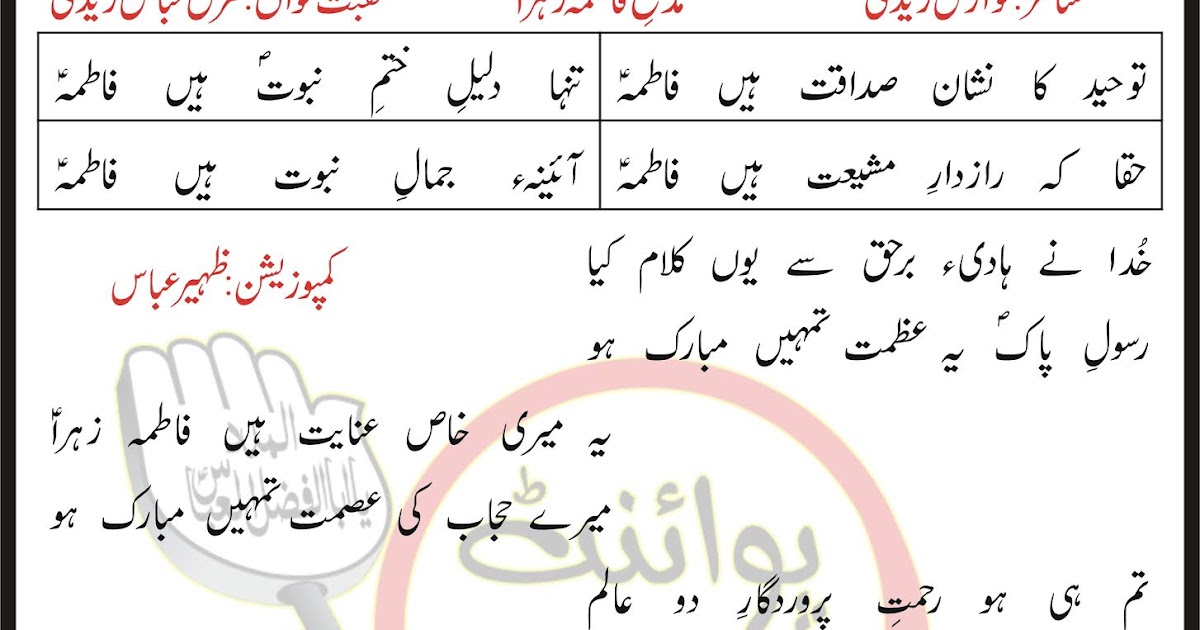 شاعر: نوازش زیدی مدحِ فاطمہ زہراؑ منقبت خواں: عباس زیدی
توحید کا نشان صداقت ہیں فاطمہؑ تنہا دلیلِ ختمِ نبوتؐ ہیں فاطمہؑ
حقا کہ رازدارِ مشیعت ہیں فاطمہؑ آئینہء جمالِ نبوت ہیں فاطمہؑ
خُدا نے ہادیء برحق سے یوں کلام کیا
کمپوزیشن: ظہیر عباس
رسولِ پاکؐ یہ عظمت تمہیں مبارک ہو
یہ میری خاص عنایت ہیں فاطمہ زہراؑ
میرے حجاب کی عصمت تمہیں مبارک ہو
یا ابا الفضل العباسؑ
پوائنٹ
تم ہی ہو رحمتِ پروردگارِ دو عالم